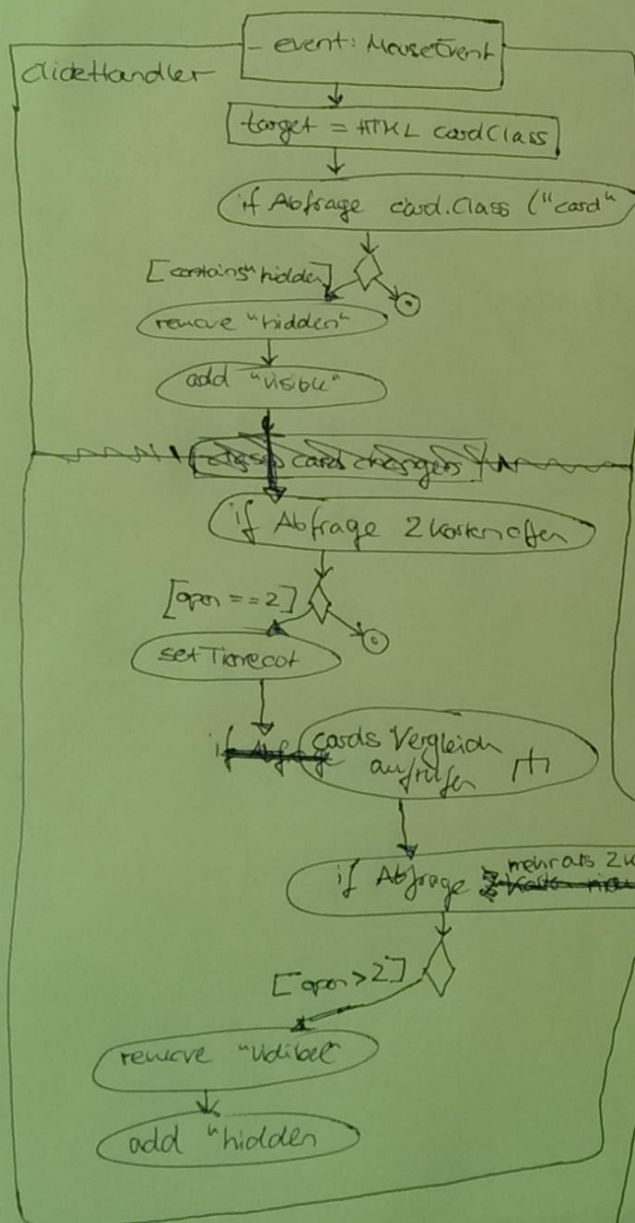 - event: MouseEvent
clickHandler
target = HTML cardClass
if Abfrage card.Class ("card"
[contains "hidden]
remove "hidden"
add "visible"
if Abfrage 2 Karten offen
[open == 2]
setTimeout
if Abfrage
cards Vergleich
aufrufen
if Abfrage mehr als 2 K
[open > 2]
remove "
add "hidden